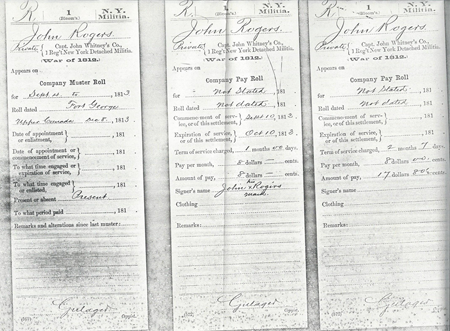 R. 1 N.Y.
(Bloom's) Militia.
John Rogers
Private, Capt. John Whitney's Co.,
1 Reg't New York Detached Militia.
War of 1812.
Appears on
Company Muster Roll
for Sept 10 to , 1813
Roll dated Fort George
Upper Canada Dec 8, 1813
Date of appointment or enlistment, , 181 .
Date of appointment or commencement of service, , 181 .
To what time engaged or expiration of service, , 181 .
To what time engaged or enlisted, , 181 .
Present or absent Present
To what period paid , 181 .
Remarks and alterations since last muster:
Copyist.
R. 1 N.Y.
(Bloom's) Militia.
John Rogers.
Private, Capt. John Whitney's Co.,
1 Reg't New York Detached Militia.
War of 1812.
Appears on
Company Pay Roll
for Not Stated, 181 .
Roll dated Not dated, 181 .
Commencement of service, or of this settlement, Sept 10, 1813.
Expiration of service, or of this settlement, Oct 10, 1813.
Term of service charged, 1 months days.
Pay per month, 8 dollars — cents.
Amount of pay, 8 dollars — cents.
Signer's name John his x mark Rogers
Clothing
Remarks:
Copyist.
R. 1 N.Y.
(Bloom's) Militia.
John Rogers.
Private, Capt. John Whitney's Co.,
1 Reg't New York Detached Militia.
War of 1812.
Appears on
Company Pay Roll
for Not Stated, 181 .
Roll dated Not dated, 181 .
Commencement of service, or of this settlement, , 181 .
Expiration of service, or of this settlement, , 181 .
Term of service charged, 2 months 7 days.
Pay per month, 8 dollars cents.
Amount of pay, 17 dollars cents.
Signer's name
Clothing
Remarks:
Copyist.